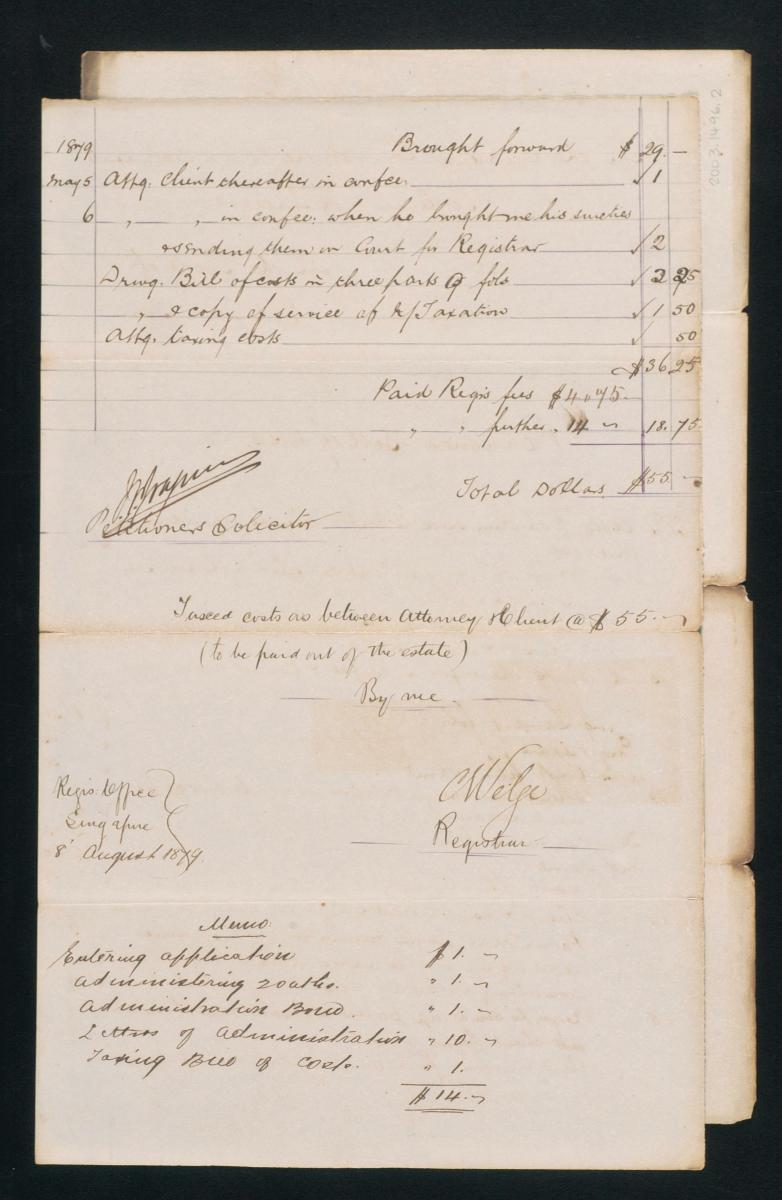 1879 Brought forward $ 29. —
May 5 Attg. Client thereafter in confce. √ 1
6 " " in confce: when he brought me his sureties
& sending them on Court for Registrar √ 2
Drwg. Bill of costs in three parts 9 fols √ 2 25
" & copy of service of N/Taxation √ 1 50
Attg. taxing costs √ 50
$36 25
Paid Regis fees $4.75
" " further " 14 18.75
Total Dollars $55 —
Petitioners Solicitor
Taxed costs as between Attorney & Client @ $ 55.—
(to be paid out of the estate)
By me
Regis: Office
Singapore
8' August 1879.
Registrar
Memo
Entering application $ 1. —
Administering 2 oaths. " 1. —
Administration Bond. " 1. —
Letters of Administration " 10. —
Taxing Bill of Costs. " 1.
$ 14. —
2003.1496.2